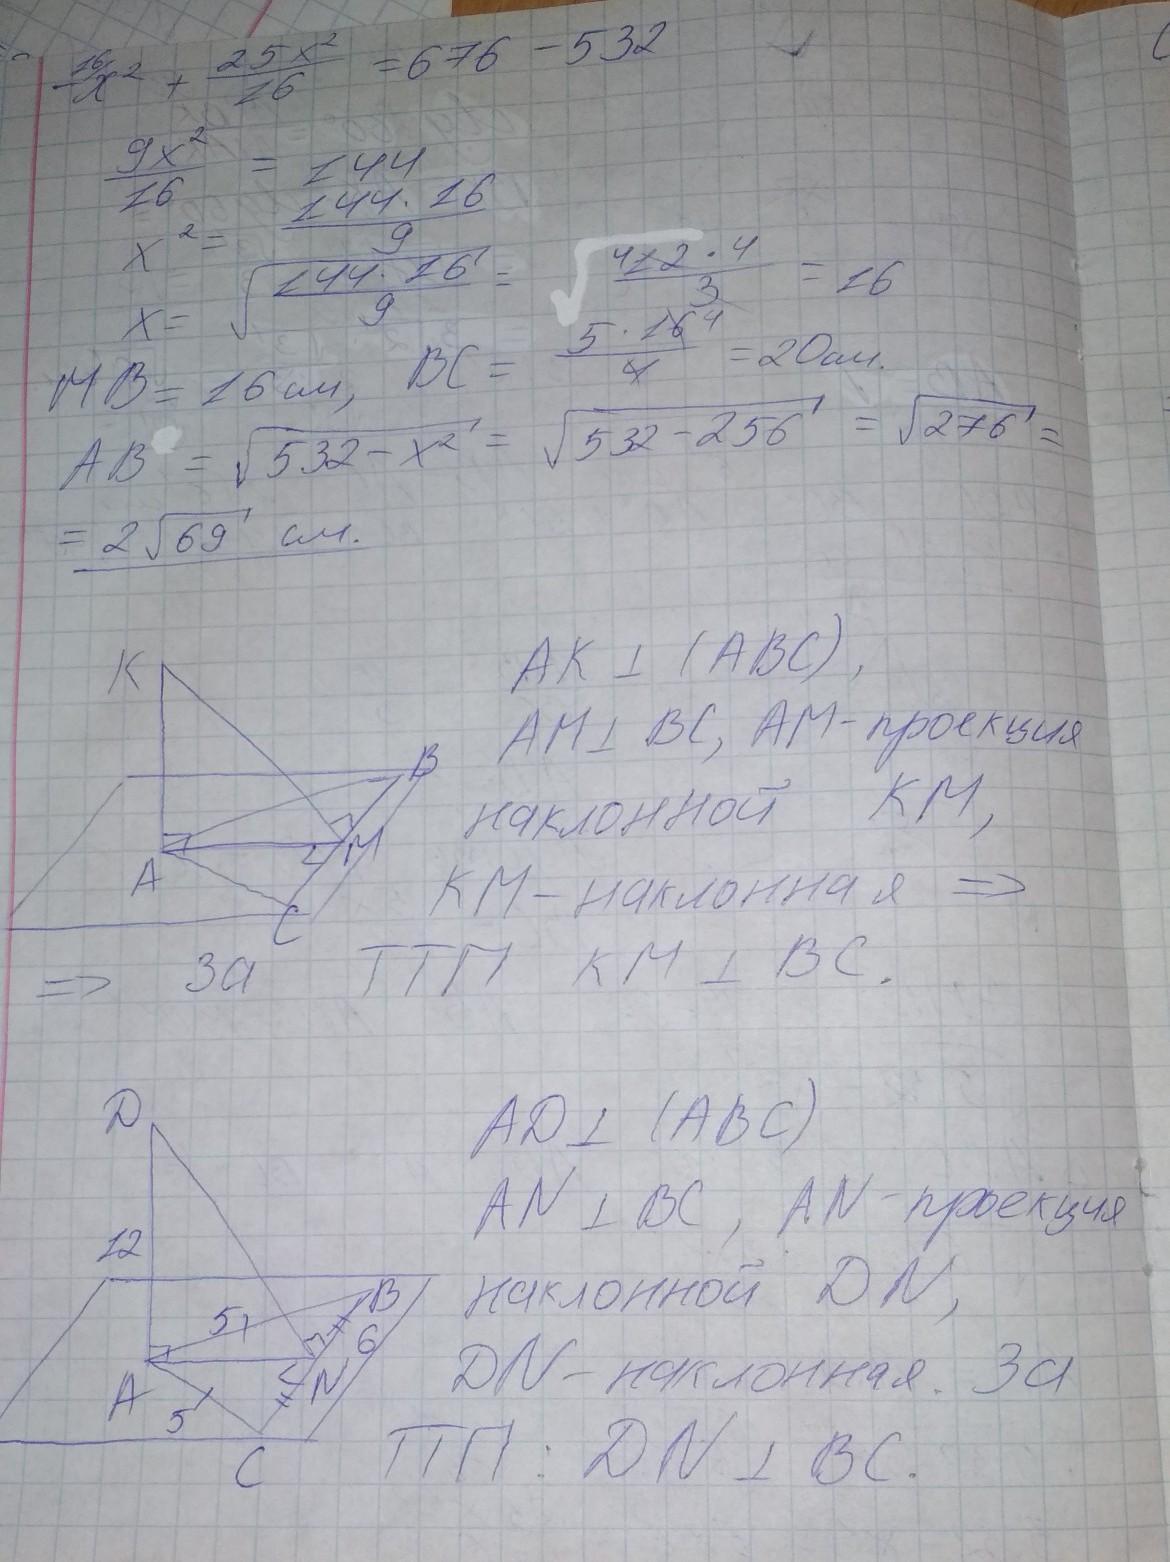 -x² + 25x²/16 = 676 - 532
9x²/16 = 144
x² = 144·16/9
x = √(144·16/9) = √(412·4/3) = 16
MB = 16 см, BC = 5·16/4 = 20 см.
AB = √(532-x²) = √(532-256) = √276 =
= 2√69 см.
K
AK ⊥ (ABC),
AM ⊥ BC, AM - проекция
B
наклонной KM,
M
A
KM - наклонная =>
C
=> За ТТП KM ⊥ BC.
D
AD ⊥ (ABC)
AN ⊥ BC, AN - проекция
12
наклонной DN,
B
5
6
A
N
DN - наклонная. За
5
C
ТТП: DN ⊥ BC.